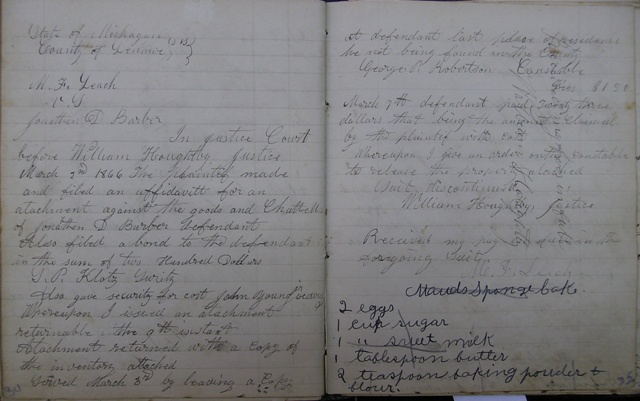 State of Michagan
County of Lenawe } SS
M. F. Leach
V S
Jonathen D Barber
In justice Court
before William Houghtby Justice
March 2nd 1866 The plaintif made
and filed an affidavitt for an
atachment against the goods and Chattells
of Jonathen D Barber Defendant
Also filed a bond to the defendant
in the sum of two Hundred Dollars
S. P. Klotz Surity
Also gave security for cost John Young
Whereupon I issued an attachment
returnable the 9th instant
Attachment returned with a Copy of
the inventory attached
Served March 3rd by leaving a Copy
At defendant last place of residence
he not being found in the County
George P. Robertson Constable
Fees $1.50
March 7th defendant paid Twenty three
dollars that being the amount claimed
by the plaintif with Cost
Whereupon I give an order on the constable
to release the property attached
Suit discontinued
William Houghtby Justice
Received my pay in the
foregoing Suit
M. F. Leach
Mauds Sponge Cak.
2 eggs
1 cup sugar
1 " sweet milk
1 tablespoon butter
2 teaspoon baking powder +
flour.